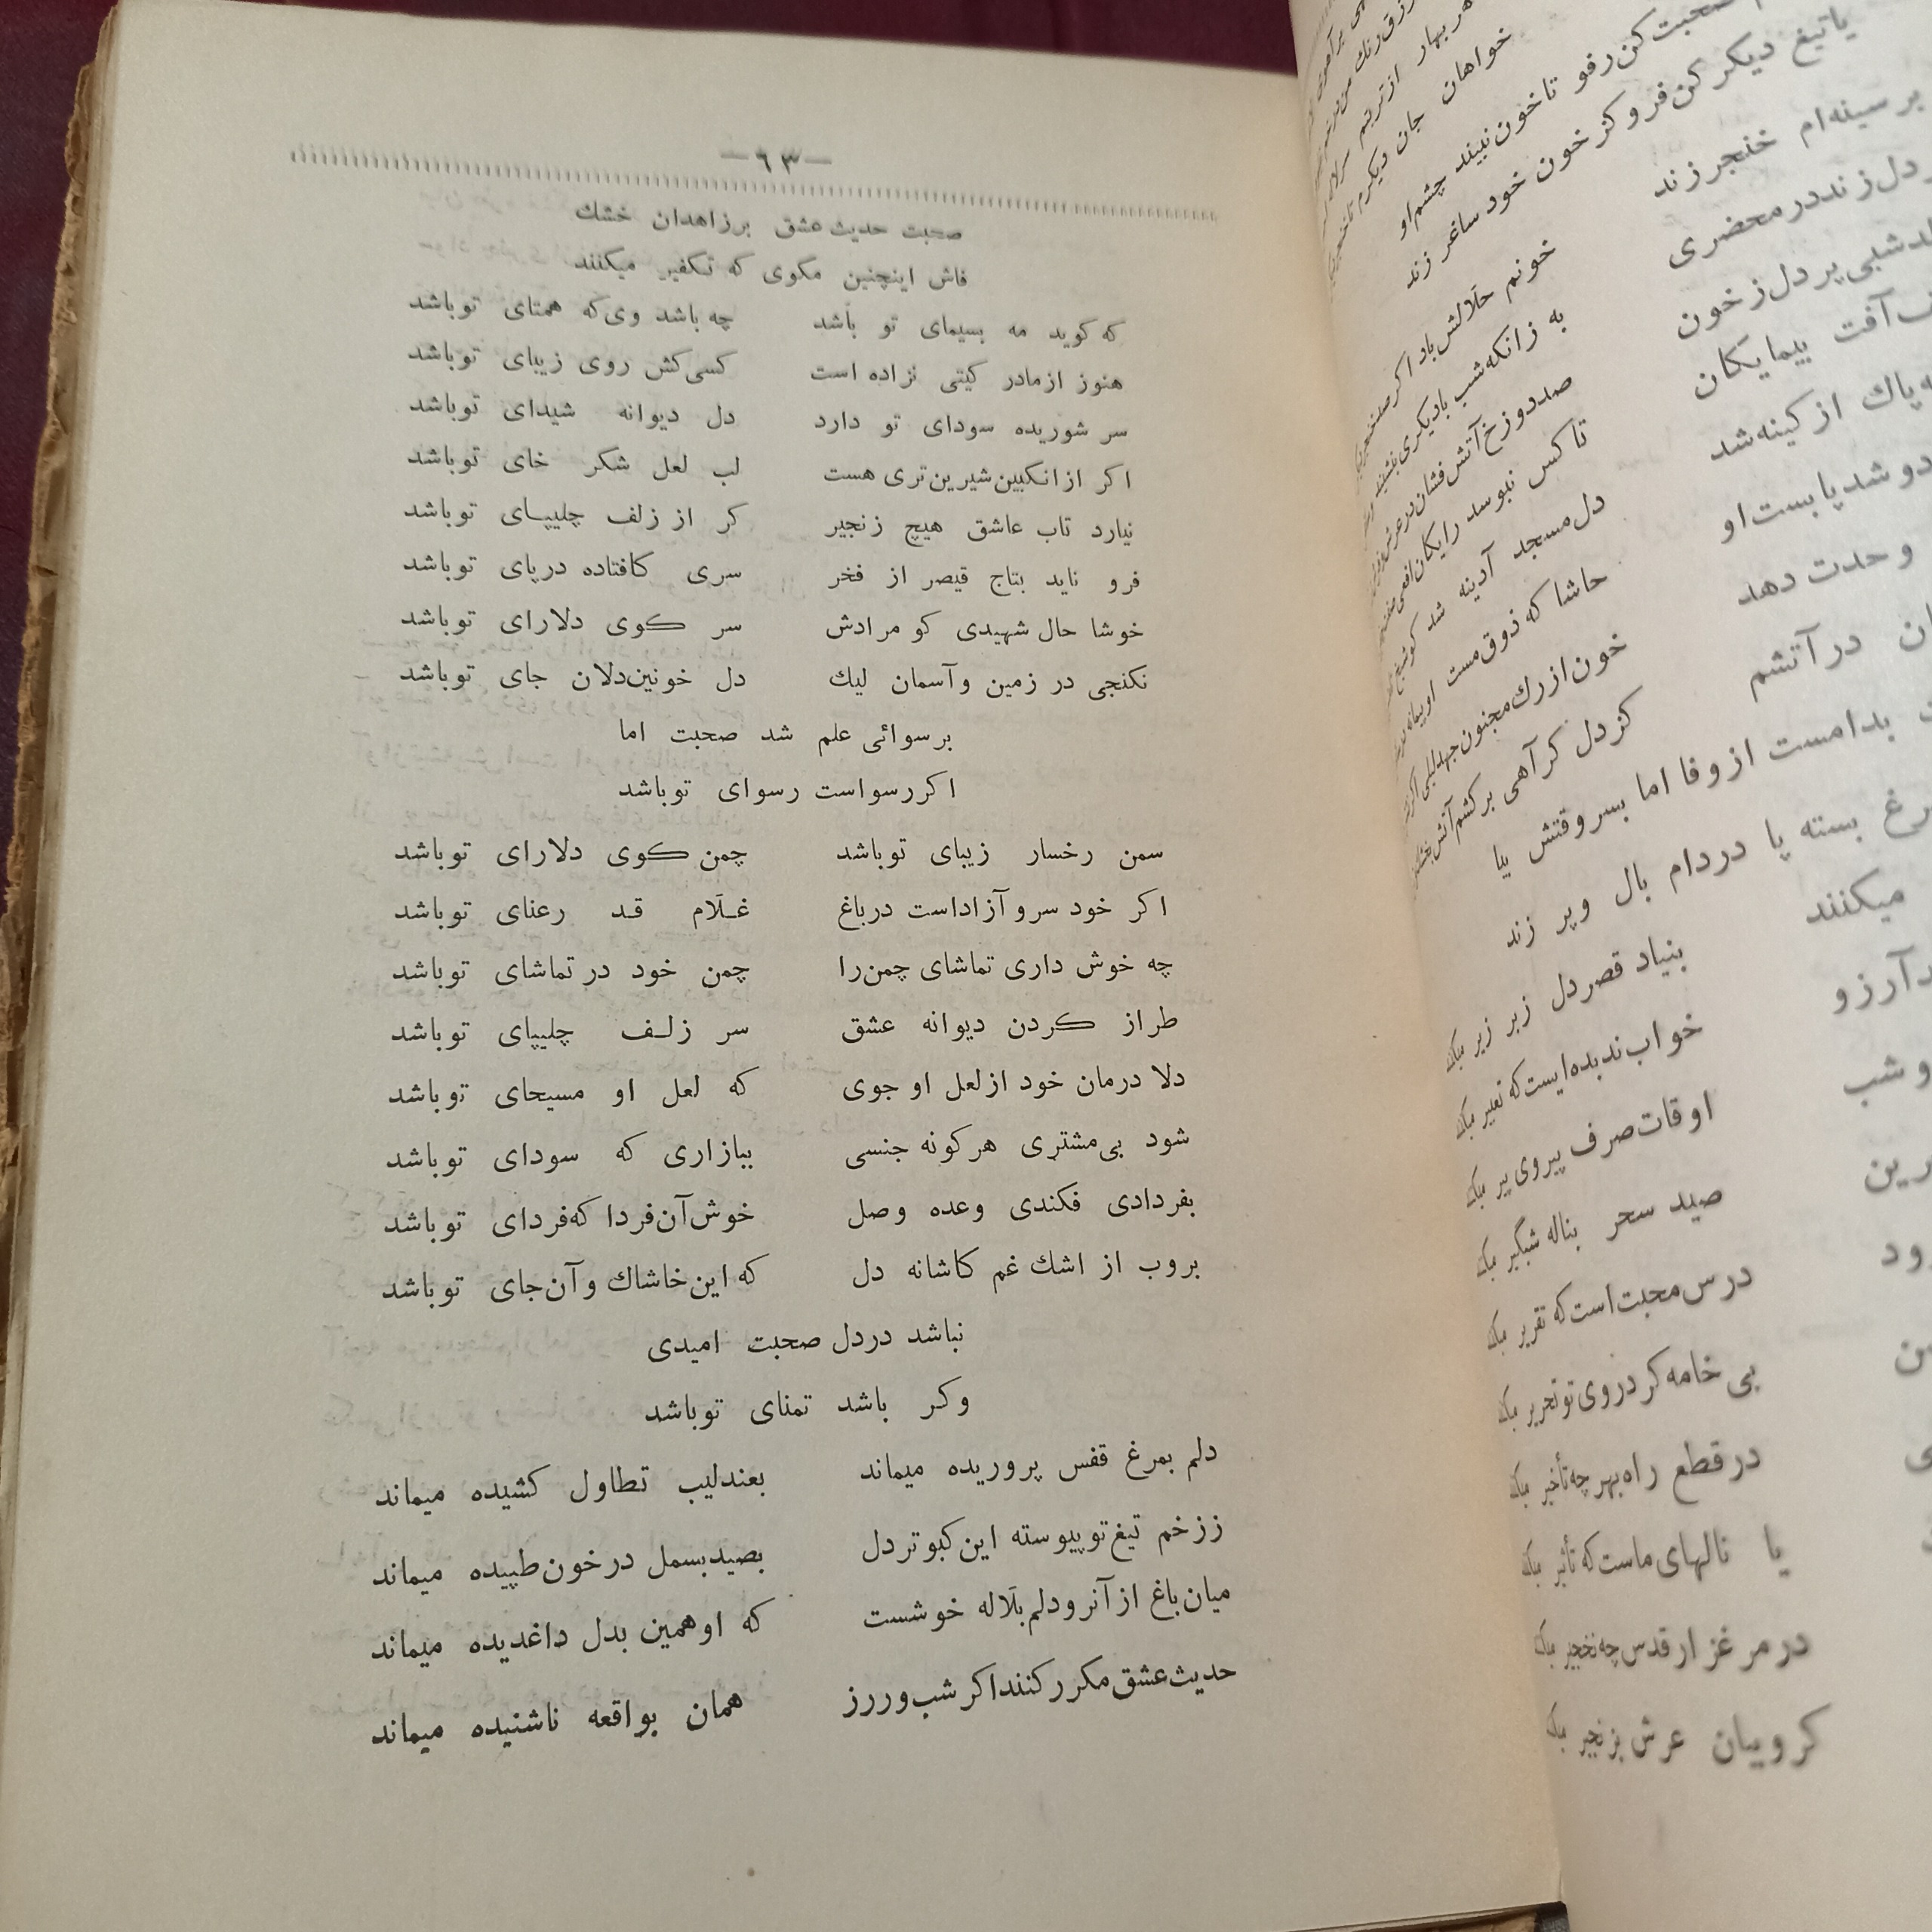 — ٦٣ —
صحبت حدیث عشق برزاهدان خشك
فاش اینچنین مكوی كه تكفیر میكنند
كه كوید مه بسیمای تو باشد چه باشد وی‌كه همتای توباشد
هنوز ازمادر كیتی نزاده است كسی‌كش روی زیبای توباشد
سر شوریده سودای تو دارد دل دیوانه شیدای توباشد
اكر ازانكبین‌شیرین‌تری هست لب لعل شكر خای توباشد
نیارد تاب عاشق هیچ زنجیر كر از زلف چلیپای توباشد
فرو ناید بتاج قیصر از فخر سری كافتاده درپای توباشد
خوشا حال شهیدی كو مرادش سر كوی دلارای توباشد
نكنجی در زمین وآسمان لیك دل خونین‌دلان جای توباشد
برسوائی علم شد صحبت اما
اكررسواست رسوای توباشد
سمن رخسار زیبای توباشد چمن كوی دلارای توباشد
اكر خود سروآزاداست درباغ غلام قد رعنای توباشد
چه خوش داری تماشای چمن‌را چمن خود درتماشای توباشد
طراز كردن دیوانه عشق سر زلف چلیپای توباشد
دلا درمان خود ازلعل او جوی كه لعل او مسیحای توباشد
شود بی‌مشتری هركونه جنسی ببازاری كه سودای توباشد
بفردادی فكندی وعده وصل خوش‌آن‌فردا كه‌فردای توباشد
بروب از اشك غم كاشانه دل كه این‌خاشاك وآن‌جای توباشد
نباشد دردل صحبت امیدی
وكر باشد تمنای توباشد
دلم بمرغ قفس پروریده میماند بعندلیب تطاول كشیده میماند
ززخم تیغ‌توپیوسته این‌كبوتردل بصیدبسمل درخون‌طپیده میماند
میان‌باغ ازآنرودلم‌بلاله خوشست كه اوهمین بدل داغدیده میماند
حدیث‌عشق‌مكرركننداكر شب‌وررز همان بواقعه ناشنیده میماند
خواهان جان دیكرم
صحبت‌كن‌رفو تاخون‌نبیند چشم‌او
یاتیغ دیكر كن‌فرو كز خون خود ساغر زند
برسینه‌ام خنجرزند
خونم حلالش‌باد اكر
دل‌زنددرمحضری
به زانكه‌شب بادیكری
شبی پردل‌زخون
صددوزخ‌آتش‌فشان
آفت بیمایكان
تاكس نبوسد رایكان
پاك ازكینه‌شد
دل‌مسجد آدینه شد
دو شدپابست‌او
حاشا كه ذوق‌مست او
وحدت دهد
خون‌ازرك‌مجنون‌جهد
درآتشم
كزدل كرآهی بركشم
بدامست ازوفا اما بسروقتش بیا
بسته پا دردام بال وپر زند
میكنند
بنیاد قصردل زبر زیر
آرزو
خواب‌ندیده‌ایست‌كه تعبیر
وشب
اوقات‌صرف پیروی پیر
صید سحر بناله شبگیر
درس‌محبت‌است‌كه تقریر
بی خامه‌كردروی‌توتحریر
درقطع راه‌بهرچه‌تأخیر
یا نالهای‌ماست‌كه تأثیر
درمرغزارقدس‌چه‌نخجیر
كروبیان عرش بزنجیر